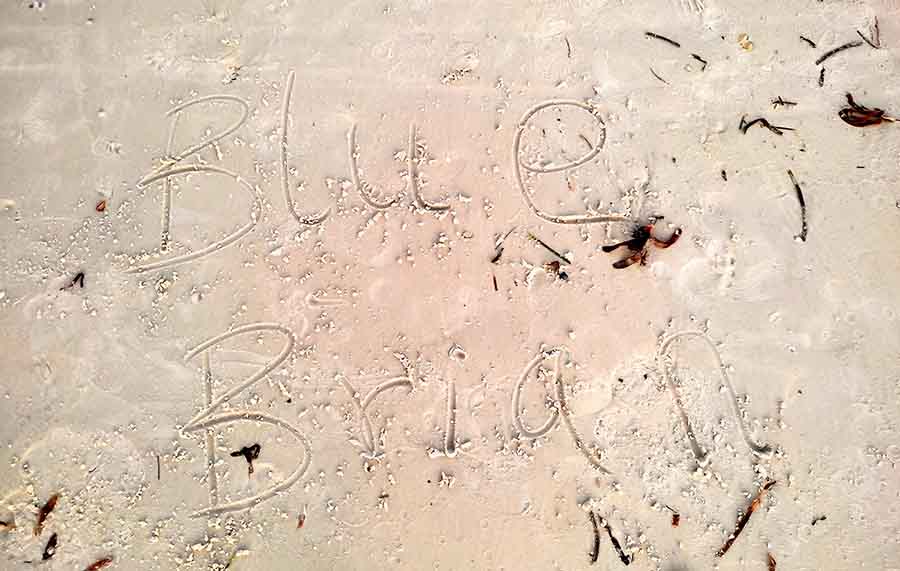 Blue
Brian